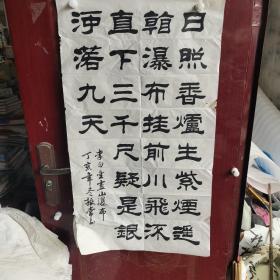 日照香爐生紫煙遥
看瀑布挂前川飛流
直下三千尺疑是銀
河落九天
李白望廬山瀑布
丁亥年冬振常書